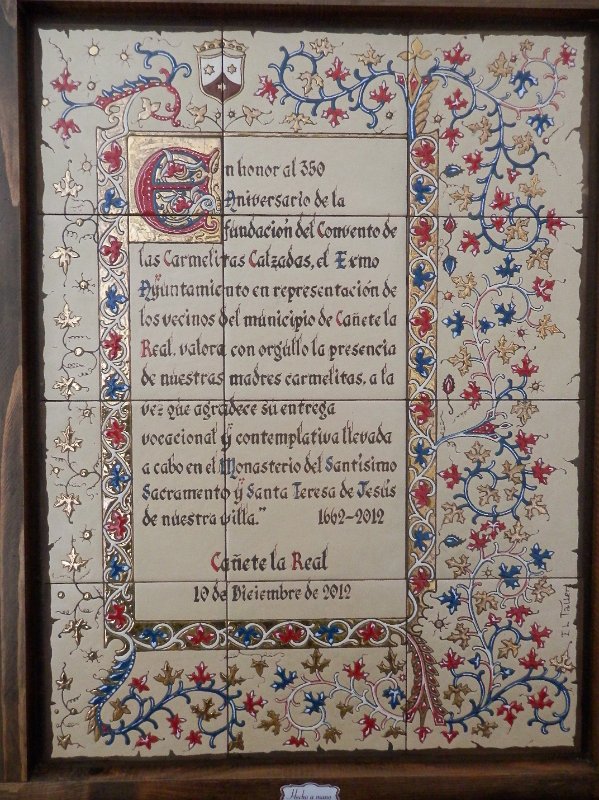 En honor al 350
Aniversario de la
fundación del Convento de
las Carmelitas Calzadas, el Exmo
Ayuntamiento en representación de
los vecinos del municipio de Cañete la
Real, valora con orgullo la presencia
de nuestras madres carmelitas, a la
vez que agradece su entrega
vocacional y contemplativa llevada
a cabo en el Monasterio del Santísimo
Sacramento y Santa Teresa de Jesús
de nuestra villa." 1662-2012
Cañete la Real
10 de Diciembre de 2012
Taller
Hecho a mano